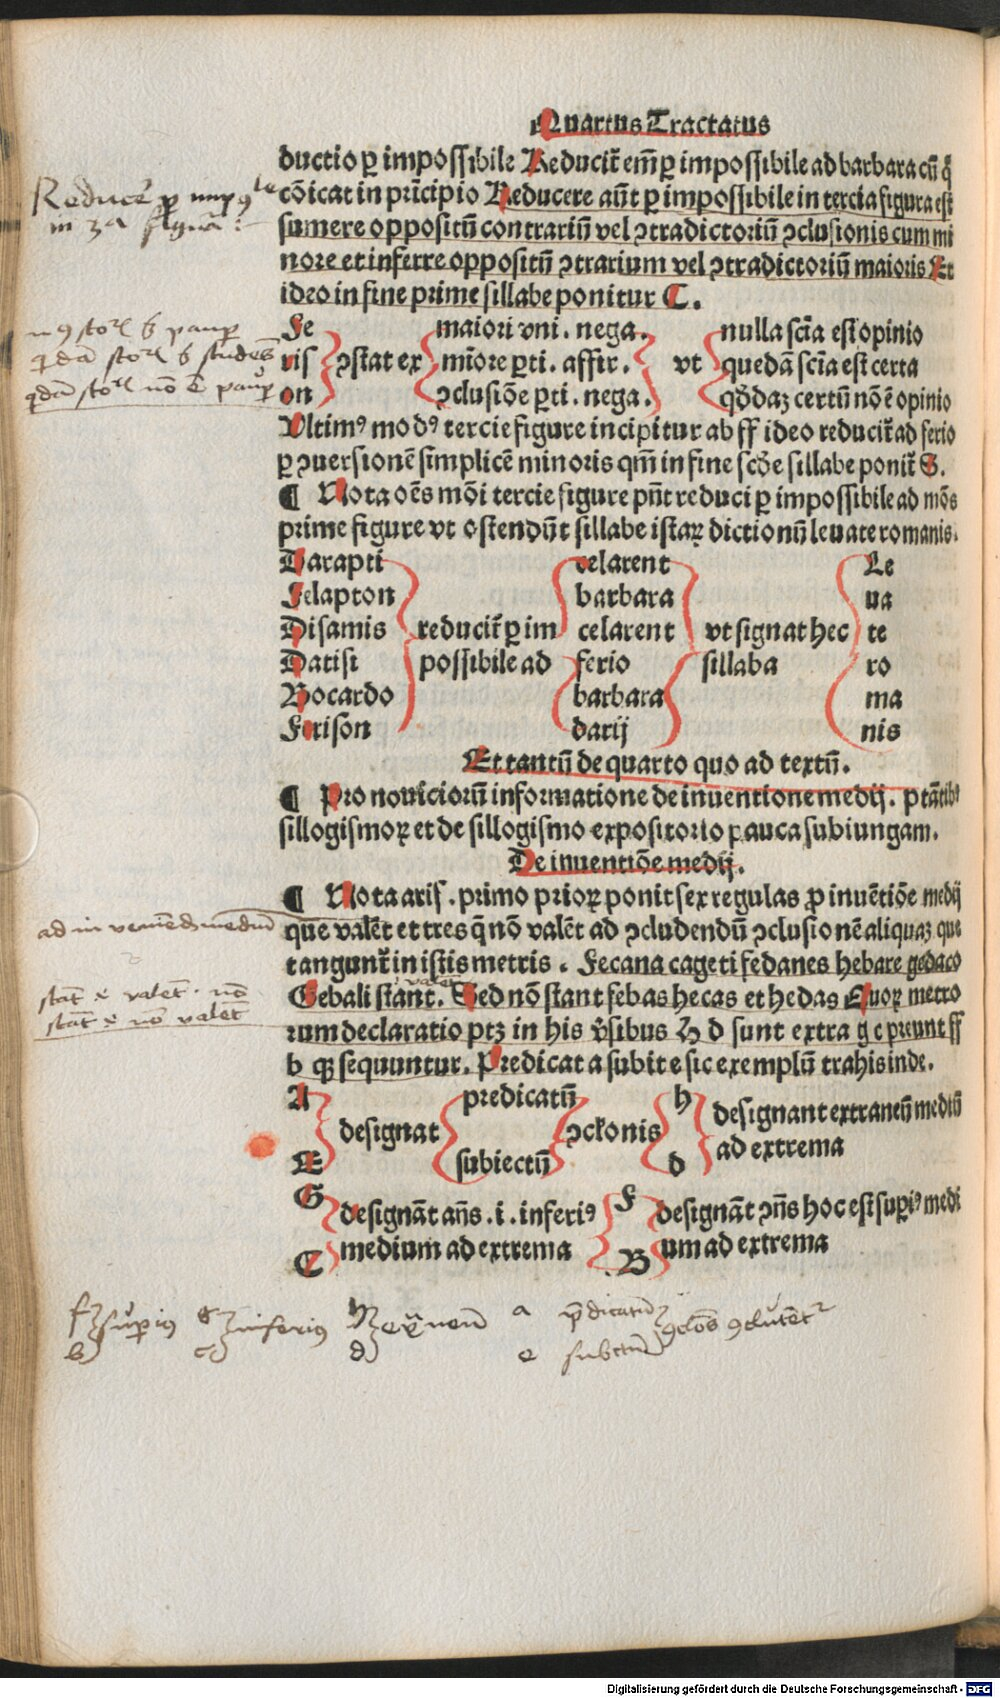 Quartus Tractatus
ductio ꝑ impossibile Reducit̄ em̄ ꝑ impossibile ad barbara cū q̄
cōicat in prīcipio Reducere aūt ꝑ impossibile in tercia figura est
sumere oppositū contrariū vel ꝯtradictoriū ꝯclusionis cum mi
nore et inferre oppositū ꝯtrarium vel ꝯtradictoriū maioris Et
ideo in fine prime sillabe ponitur C.
Fe maiori vni. nega. nulla scīa est opinio
ris ꝯstat ex mīore ꝑti. affir. vt quedā scīa est certa
on ꝯclusiōe ꝑti. nega. qd̄daꝫ certū nō ē opinio
Vltimꝰ modꝰ tercie figure incipitur ab ff ideo reducit̄ ad ferio
ꝑ ꝯuersionē simplicē minoris qm̄ in fine scd̄e sillabe ponit̄ S.
¶ Nota oēs mōi tercie figure pn̄t reduci ꝑ impossibile ad mōs
prime figure vt ostendūt sillabe istaꝝ dictionū leuate romanis.
Darapti celarent Le
Felapton barbara ua
Disamis reducit̄ ꝑ im celarent vt signat hec te
Datisi possibile ad ferio sillaba ro
Bocardo barbara ma
Ferison darij nis
Et tantū de quarto quo ad textū.
¶ Pro nouiciorū informatione de inuentione medij. ptātibꝰ
sillogismoꝝ et de sillogismo expositorio pauca subiungam.
De inuentiōe medij.
¶ Nota aris. primo prioꝝ ponit sex regulas ꝓ inuētiōe medij
que valēt et tres q̄ nō valēt ad ꝯcludendū ꝯclusionē aliquaꝫ que
tangunt̄ in istis metris. Fecana cageti fedanes hebare gedaco
Gebali stant. Sed nō stant febas hecas et hedas Quoꝝ metro
valet
rum declaratio ptꝫ in his v̄sibus H d sunt extra g c preunt ff
b qꝫ sequuntur. Predicat a subit e sic exemplū trahis inde.
A predicatū h designant extraneū mediū
designat ꝯclonis
E subiectū d ad extrema
G designāt an̄s .i. inferiꝰ F designāt ꝯn̄s hoc est suꝑiꝰ medi
C medium ad extrema B um ad extrema
Reducere ꝑ impꝰle
in 3a figura
ad inveniend medium
stant e valēt. nō
stāt e nō valēt
f suꝑius g inferius h extraneū a p̄dicatū
b c d e subiectū
Digitalisierung gefördert durch die Deutsche Forschungsgemeinschaft - DFG